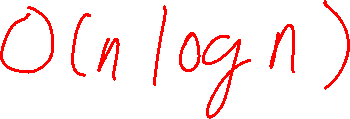 O(n log n)